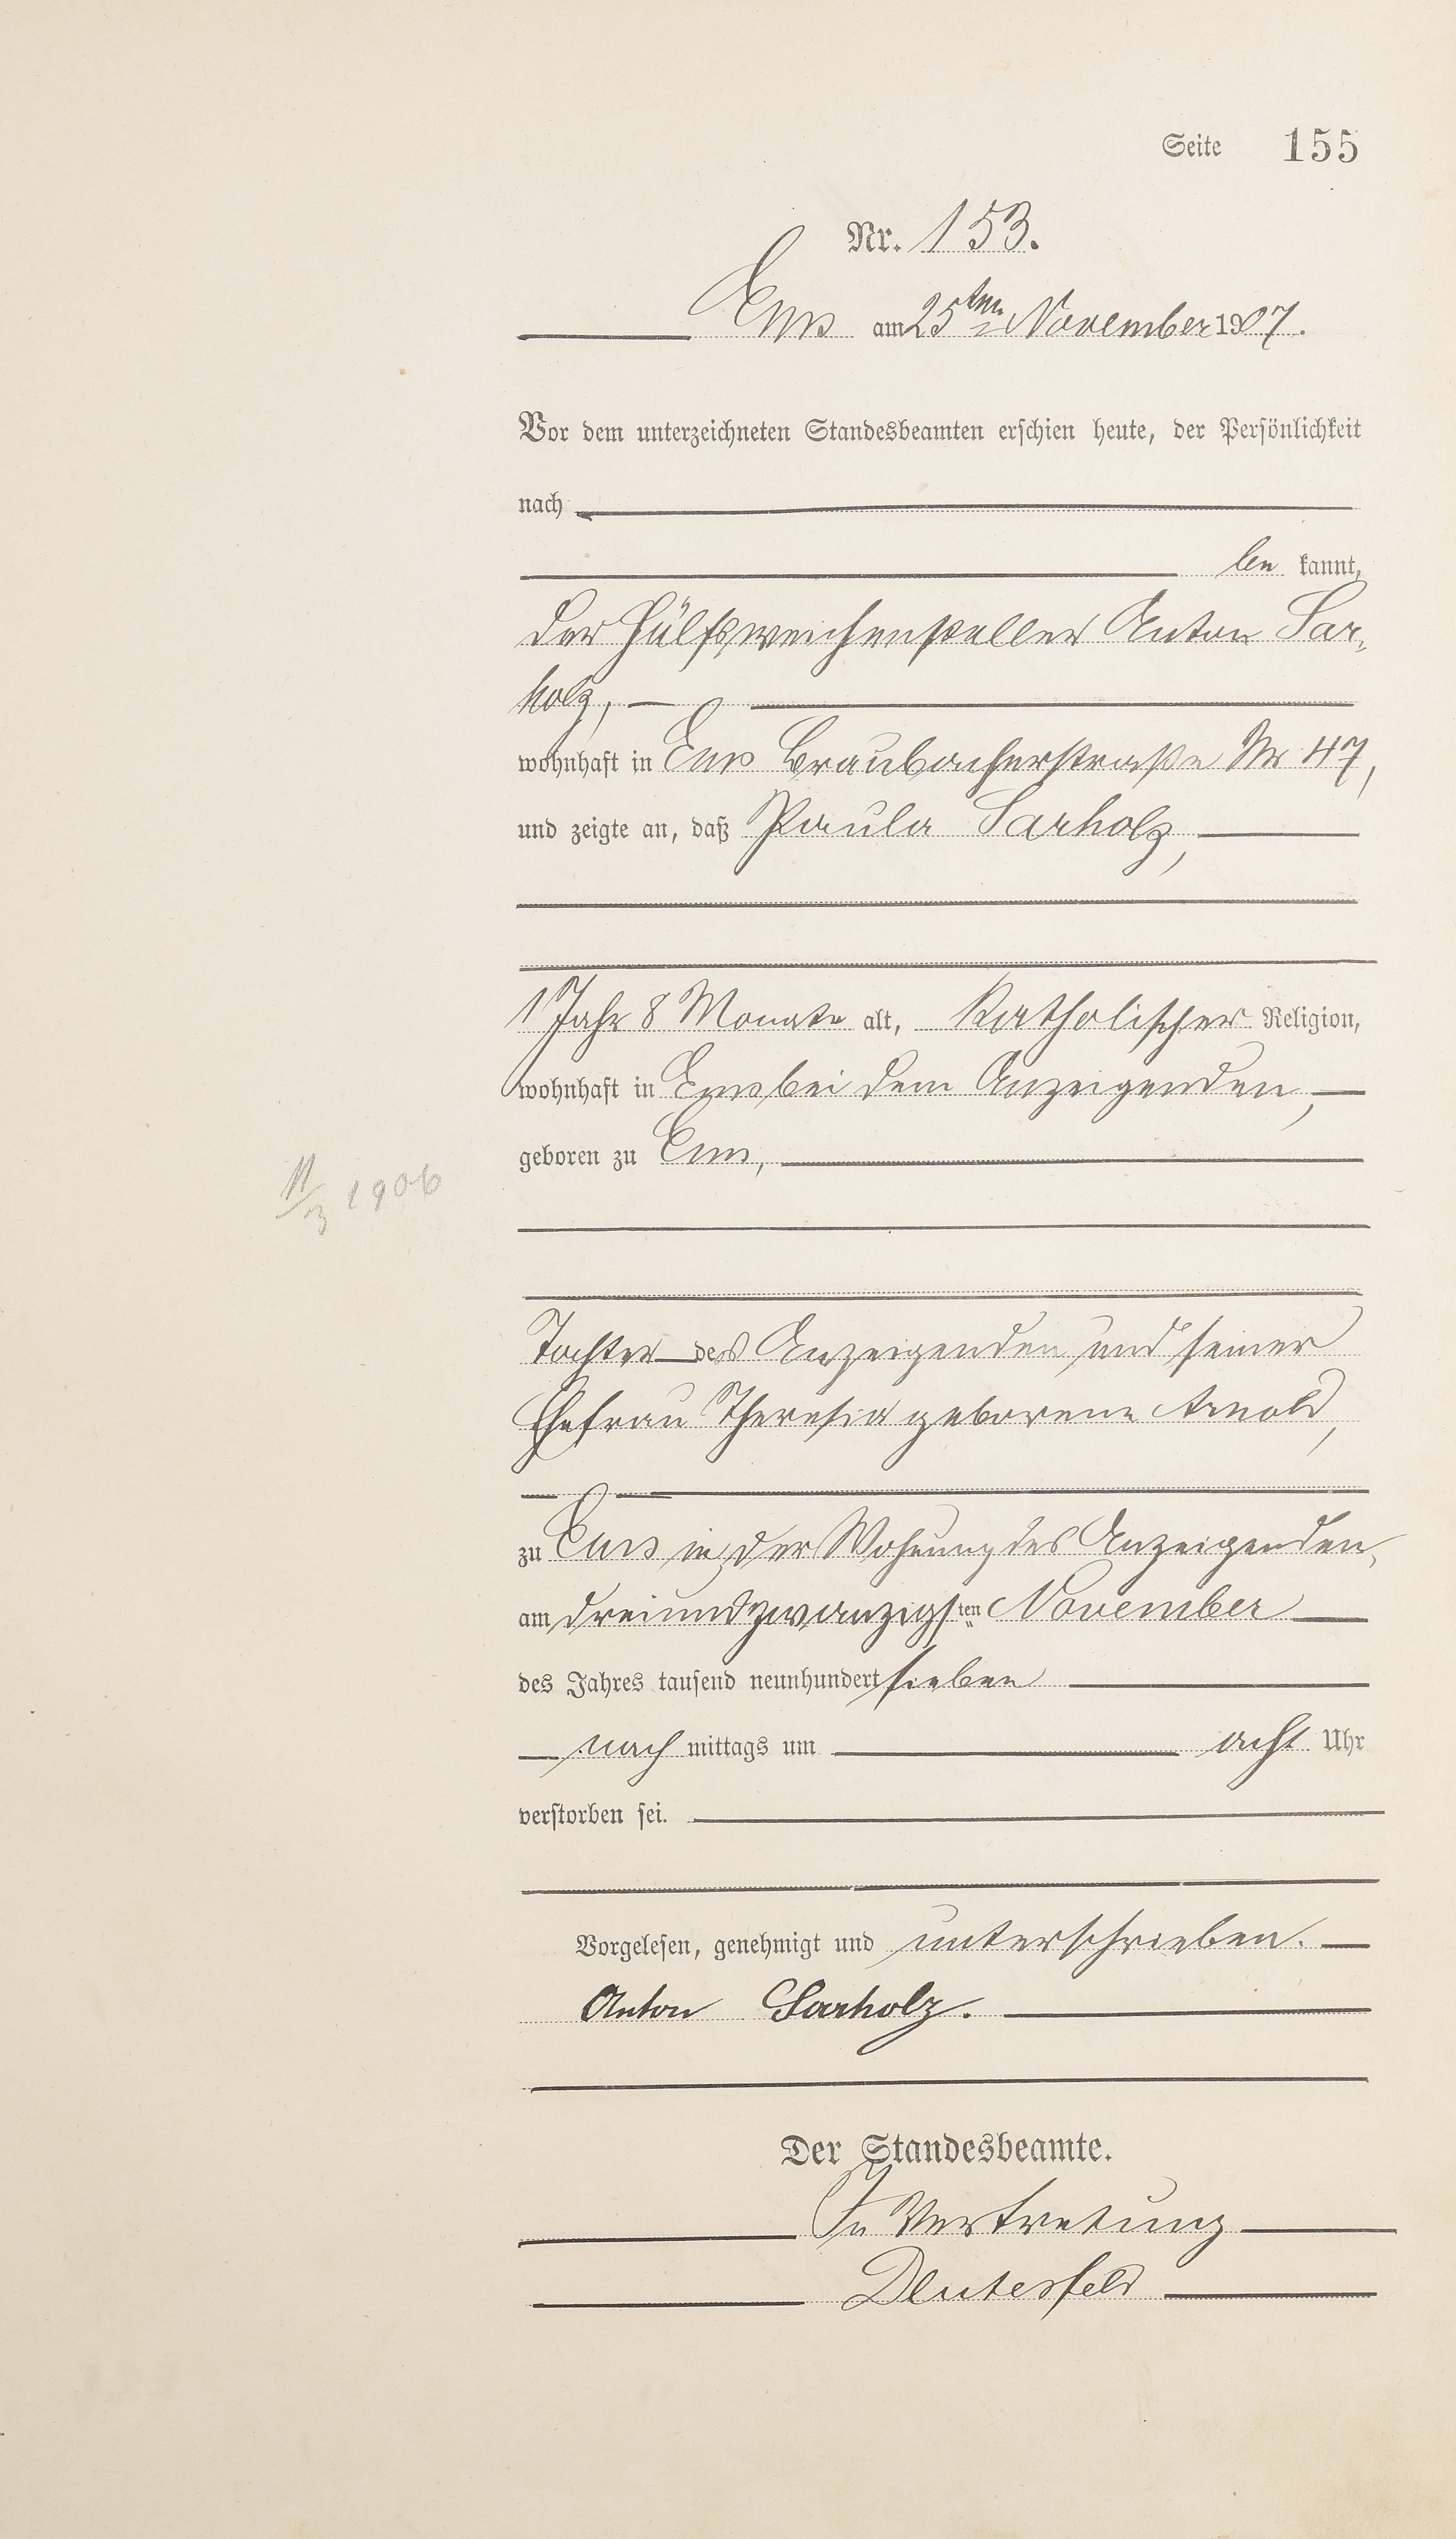 Seite 155
Nr. 153.
Ems am 25ten November 1907.
Vor dem unterzeichneten Standesbeamten erschien heute, der Persönlichkeit
nach
be kannt,
der Hülfsweichensteller Anton Sar-
holz,
wohnhaft in Ems Braubacherstraße Nr 47,
und zeigte an, daß Paula Sarholz,
1 Jahr 8 Monate alt, katholischer Religion,
wohnhaft in Ems bei dem Anzeigenden,
geboren zu Ems,
11/3 1906
Tochter des Anzeigenden und seiner
Ehefrau Theresia geborene Arnold,
zu Ems in der Wohnung des Anzeigenden,
am dreiundzwanzigsten November
des Jahres tausend neunhundert sieben
nach mittags um acht Uhr
verstorben sei.
Vorgelesen, genehmigt und unterschrieben.
Anton Sarholz.
Der Standesbeamte.
In Vertretung